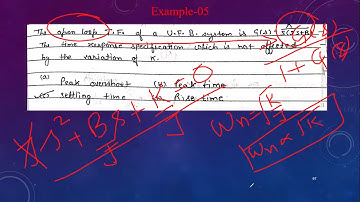 Example-05
The open loop T.F. of a U.F.B. system is G(s) = K / s(Js+B)
The time response specification which is not affected
by the variation of K.
(a) Peak overshoot (b) Peak time
(c) settling time (d) Rise time
1 + G
s² + B/J s + K/J
ωn = √K/J
ωn ∝ √K